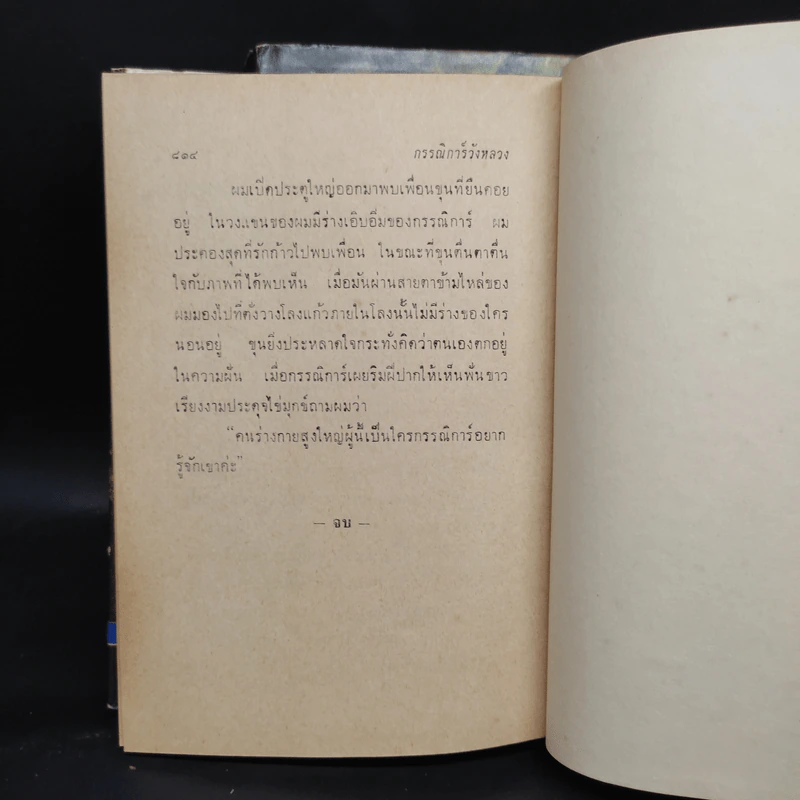 ๘๑๔ กรรณิการ์วังหลวง
ผมเปิดประตูใหญ่ออกมาพบเพื่อนขุนที่ยืนคอย
อยู่ ในวงแขนของผมมีร่างเอิบอิ่มของกรรณิการ์ ผม
ประคองสุดที่รักก้าวไปพบเพื่อน ในขณะที่ขุนตื่นตาตื่น
ใจกับภาพที่ได้พบเห็น เมื่อมันผ่านสายตาข้ามไหล่ของ
ผมมองไปที่ตั่งวางโลงแก้วภายในโลงนั้นไม่มีร่างของใคร
นอนอยู่ ขุนยิ่งประหลาดใจกระทั่งคิดว่าตนเองตกอยู่
ในความฝัน เมื่อกรรณิการ์เผยริมฝีปากให้เห็นฟันขาว
เรียงงามประดุจไข่มุกข์ถามผมว่า
“คนร่างกายสูงใหญ่ผู้นี้เป็นใครกรรณิการ์อยาก
รู้จักเขาค่ะ”
— จบ —